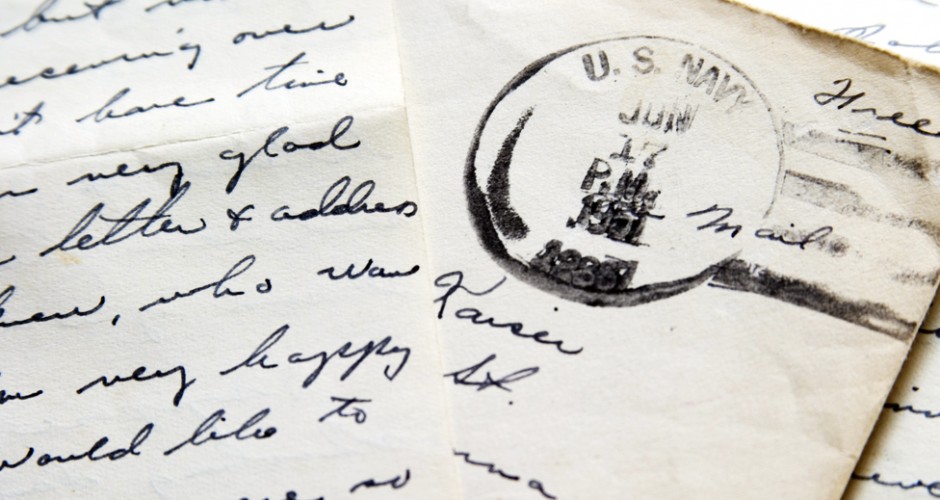 but
receiving over
it have time
very glad
letter & address
, who was
very happy
would like to
so
U. S. NAVY
JUN
17
P.M.
1951
Free
Mail
Kaiser
St.